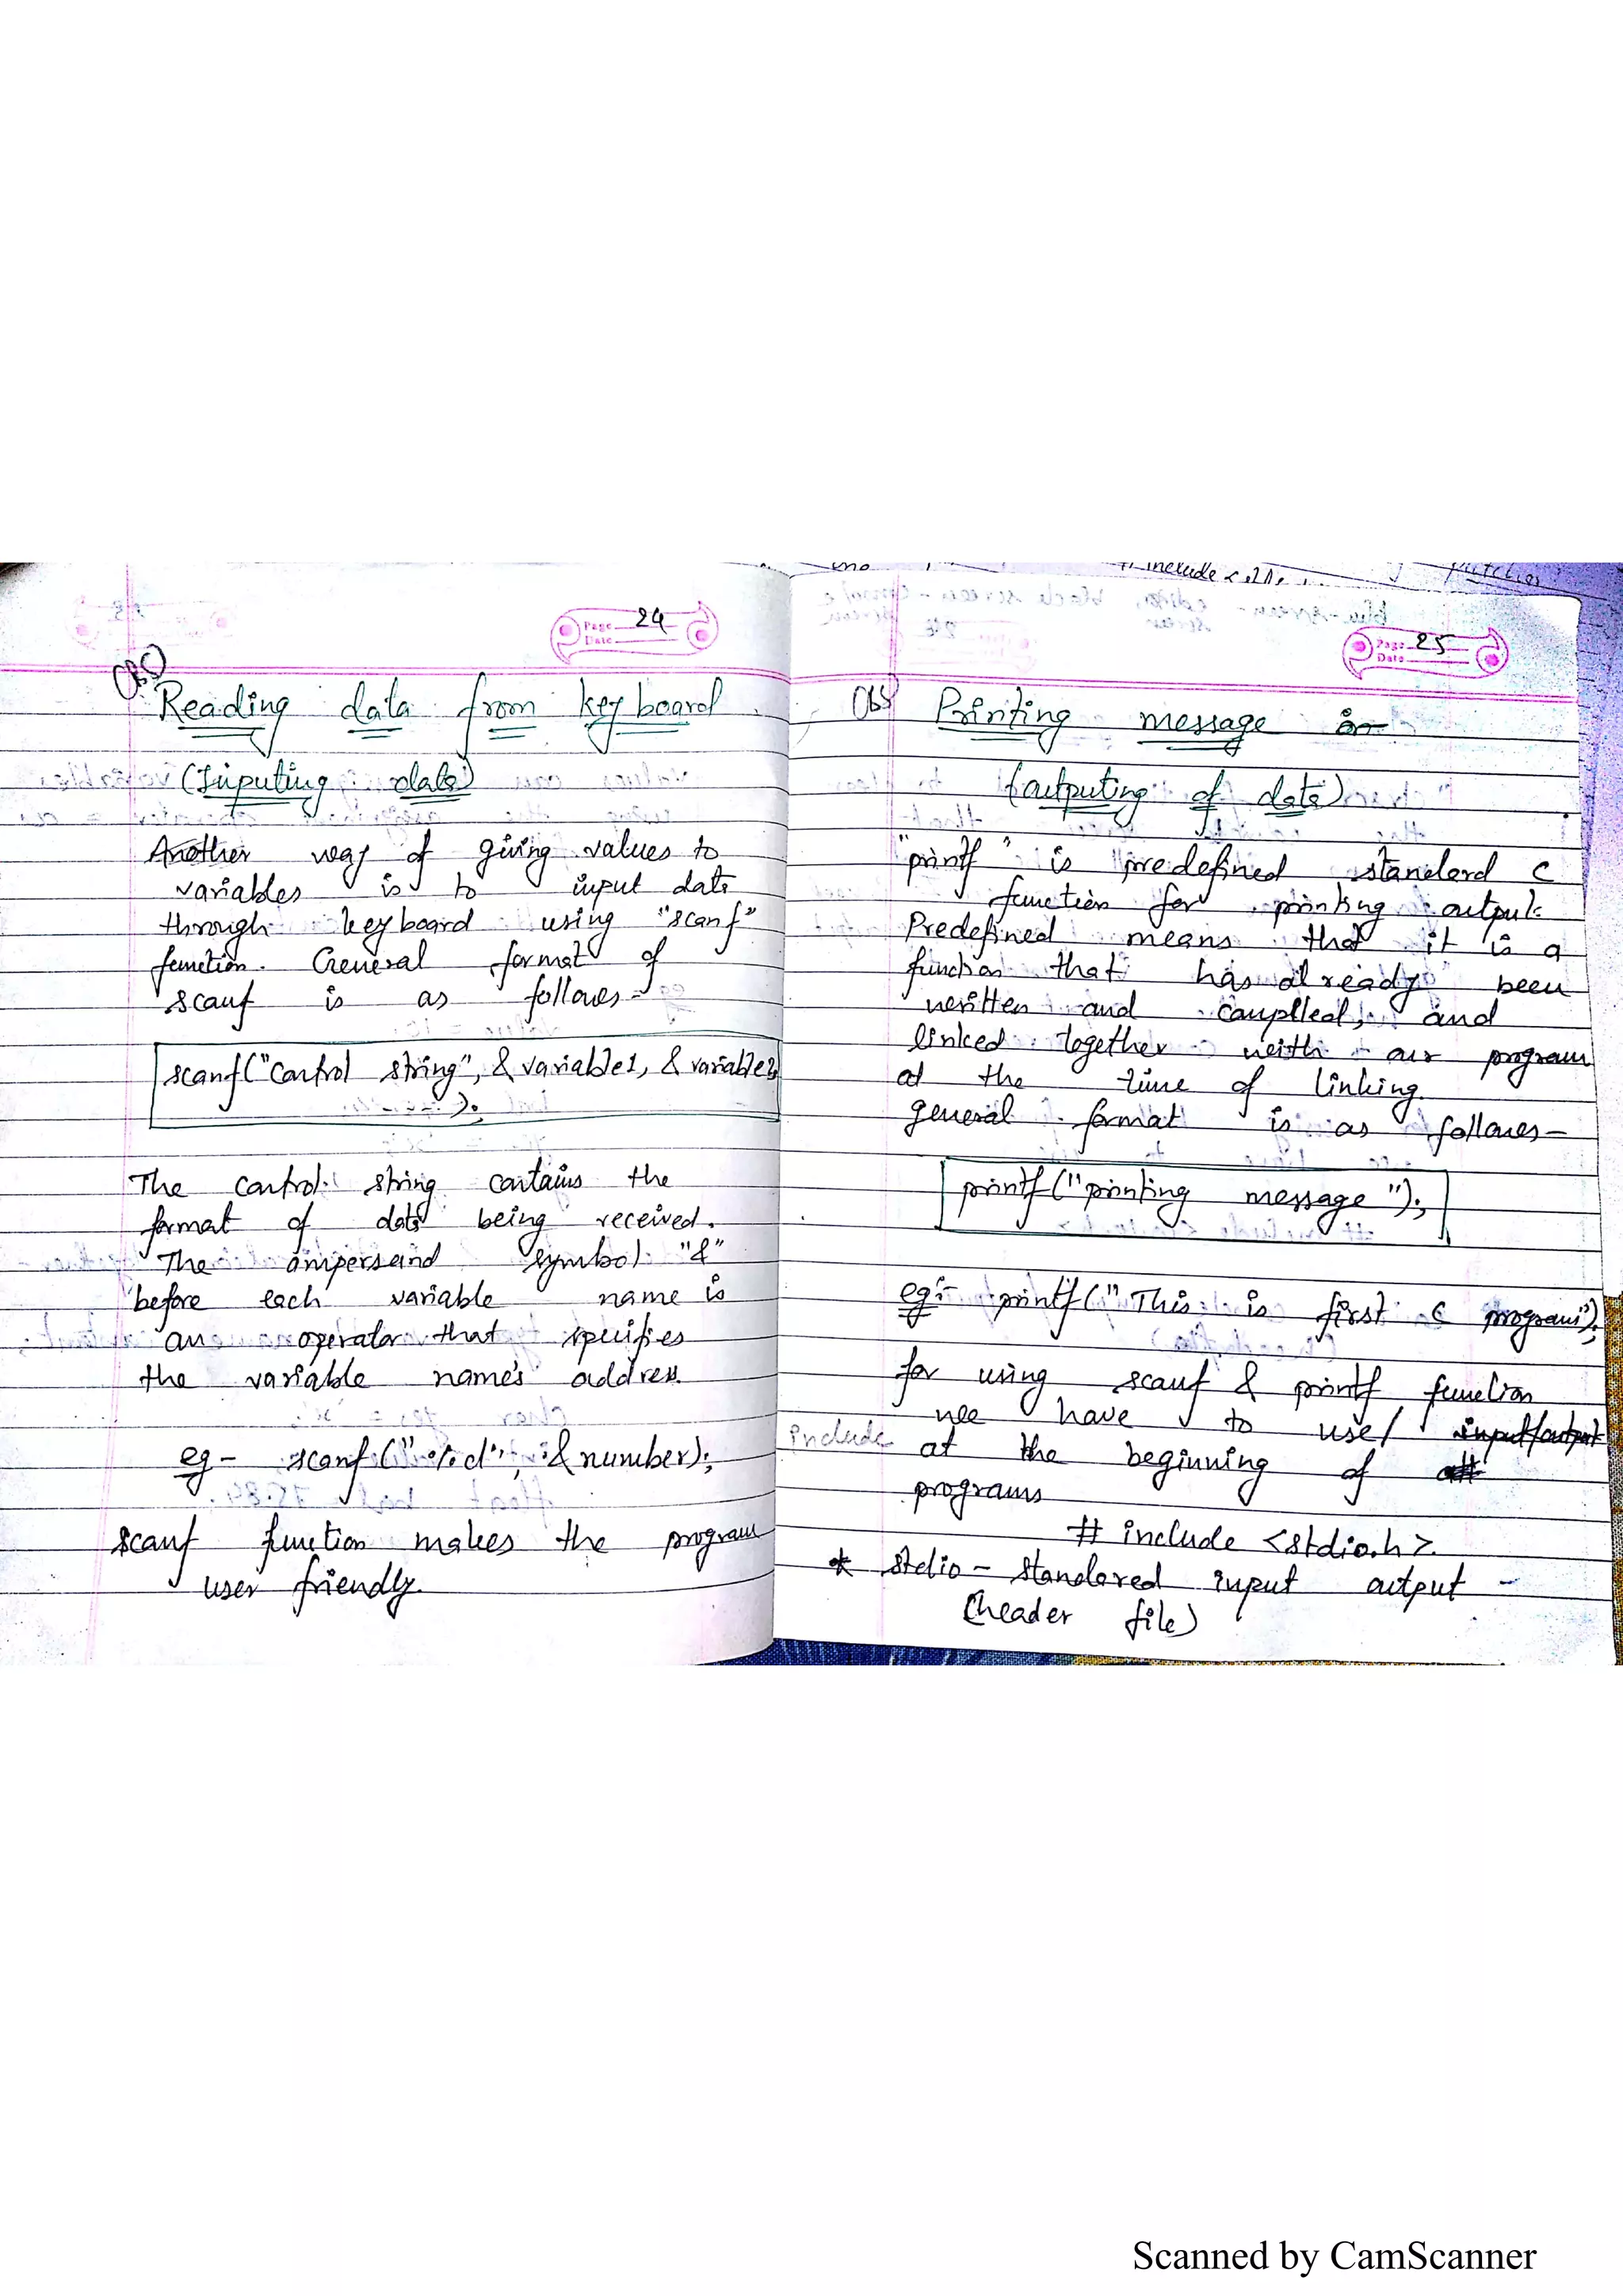 Page 24
Date
Reading data from keyboard
(Inputing data)
Another way of giving values to
variables is to input data
through keyboard using "scanf"
function. General format of
scanf is as follows -
scanf("Control string", & variable1, & variable2
----);
The control string contains the
format of data being received.
The ampersand symbol "&"
before each variable name is
an operator that specifies
the variable name's address.
eg - scanf("%d", & number);
scanf function makes the program
user friendly.
Page 25
Date
Printing message or
(outputing of data)
"printf" is predefined standerd C
function for printing output.
Predefined means that it is a
function that has already been
written and compiled, and
linked together with our program
at the time of linking.
general format is as follows -
printf("printing message");
eg:- printf("This is first C program");
for using scanf & printf function
we have to use/ input/output
include at the beginning of all
programs
# include <stdio.h>
* stdio - standared input output -
(header file)
Scanned by CamScanner